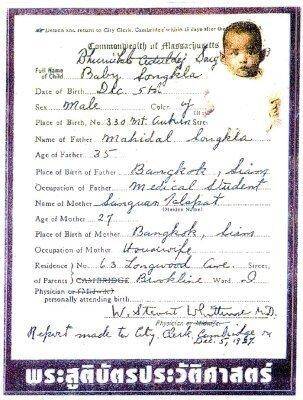 return to City Clerk, Cambridge
Commonwealth of Massachusetts
Bhumibol Aduldej
Full Name of Child Baby Songkla
Date of Birth Dec. 5th
Sex Male Color y
Place of Birth, No. 330 Mt. Auburn Street
Name of Father Mahidal Songkla
Age of Father 35
Place of Birth of Father Bangkok, Siam
Occupation of Father Medical Student
Name of Mother Sangwan
(Maiden Name)
Age of Mother 27
Place of Birth of Mother Bangkok, Siam
Occupation of Mother Housewife
Residence No. 63 Longwood Ave. Street,
of Parents CAMBRIDGE Brookline Ward
Physician or (Midwife)
personally attending birth
W. Stewart Whittemore M.D.
Physician or Midwife
Report made to City Clerk, Cambridge
Dec. 5, 1927.
พระสูติบัตรประวัติศาสตร์